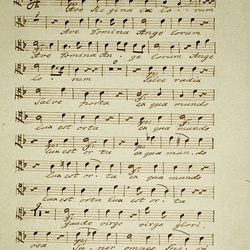 Ave Regina coelorum
Ave Domina Angelorum
Ave Domina Angelorum Ange
lorum Salve radix
Salve porta ex qua mundo
Lux est orta ex qua mundo
Lux est orta ex qua mundo
lux est orta ex qua mundo
Lux est orta lux est orta
Gaude virgo virgo glori
osa Super omnes